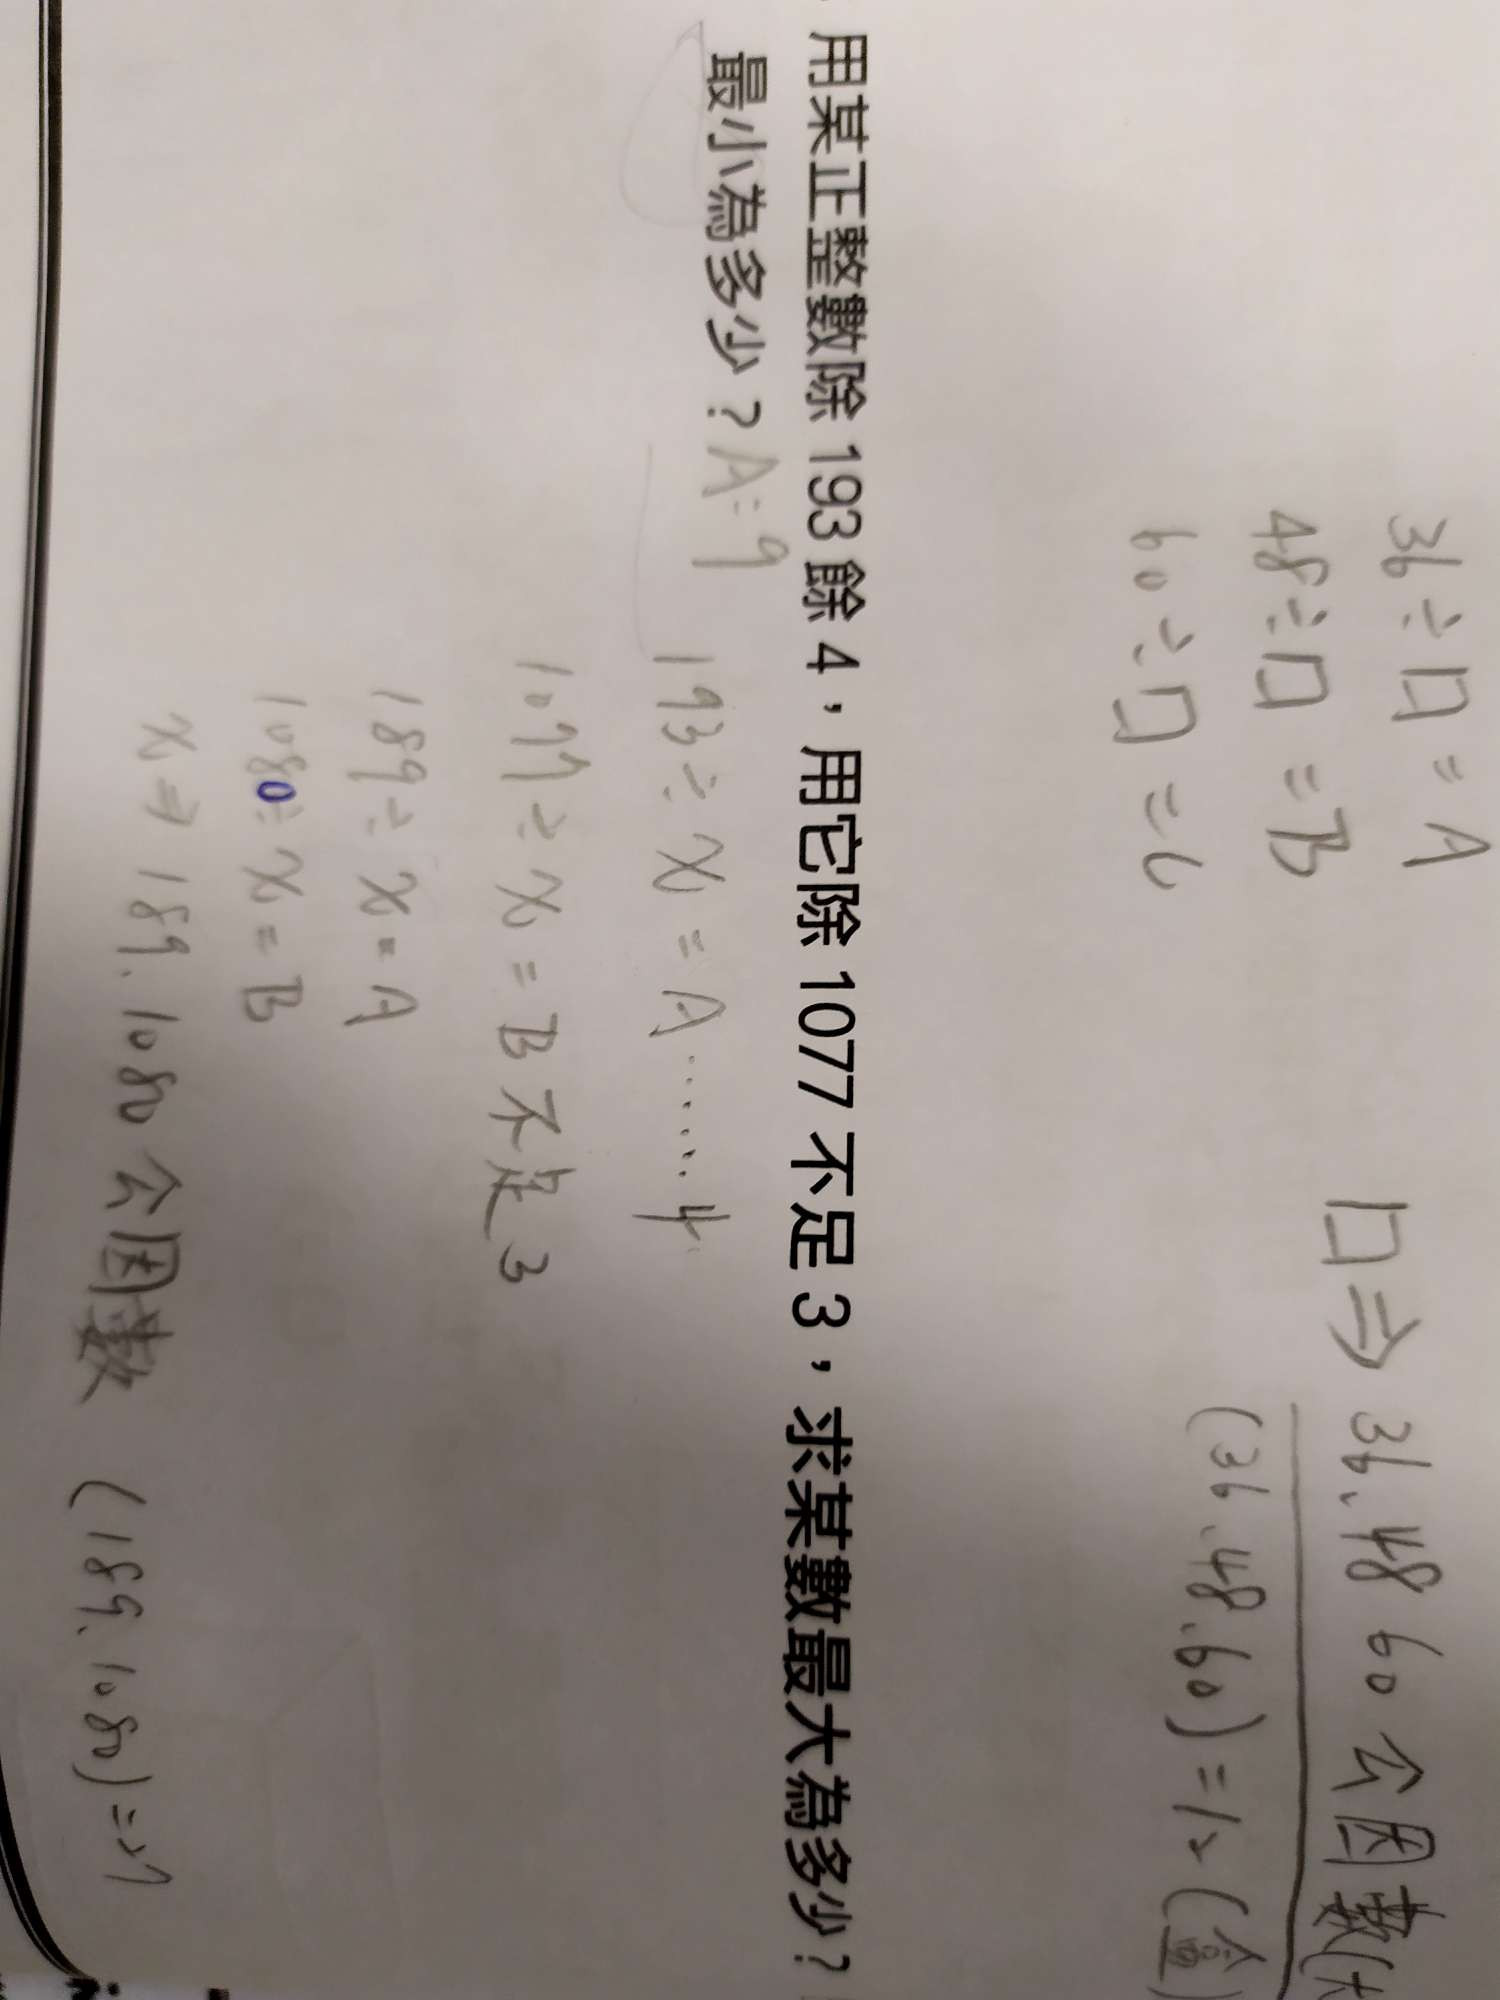 36÷□=A
□⇒36、48 60 公因数(
48÷□=B
(36、48、60)=12(盒)
60÷□=C
用某正整數除 193 餘 4，用它除 1077 不足 3，求某數最大為多少？
最小為多少？A=9
193÷x=A……4
1077÷x=B不足3
189÷x=A
1080÷x=B
x⇒189、1080公因数 (189、1080)=27